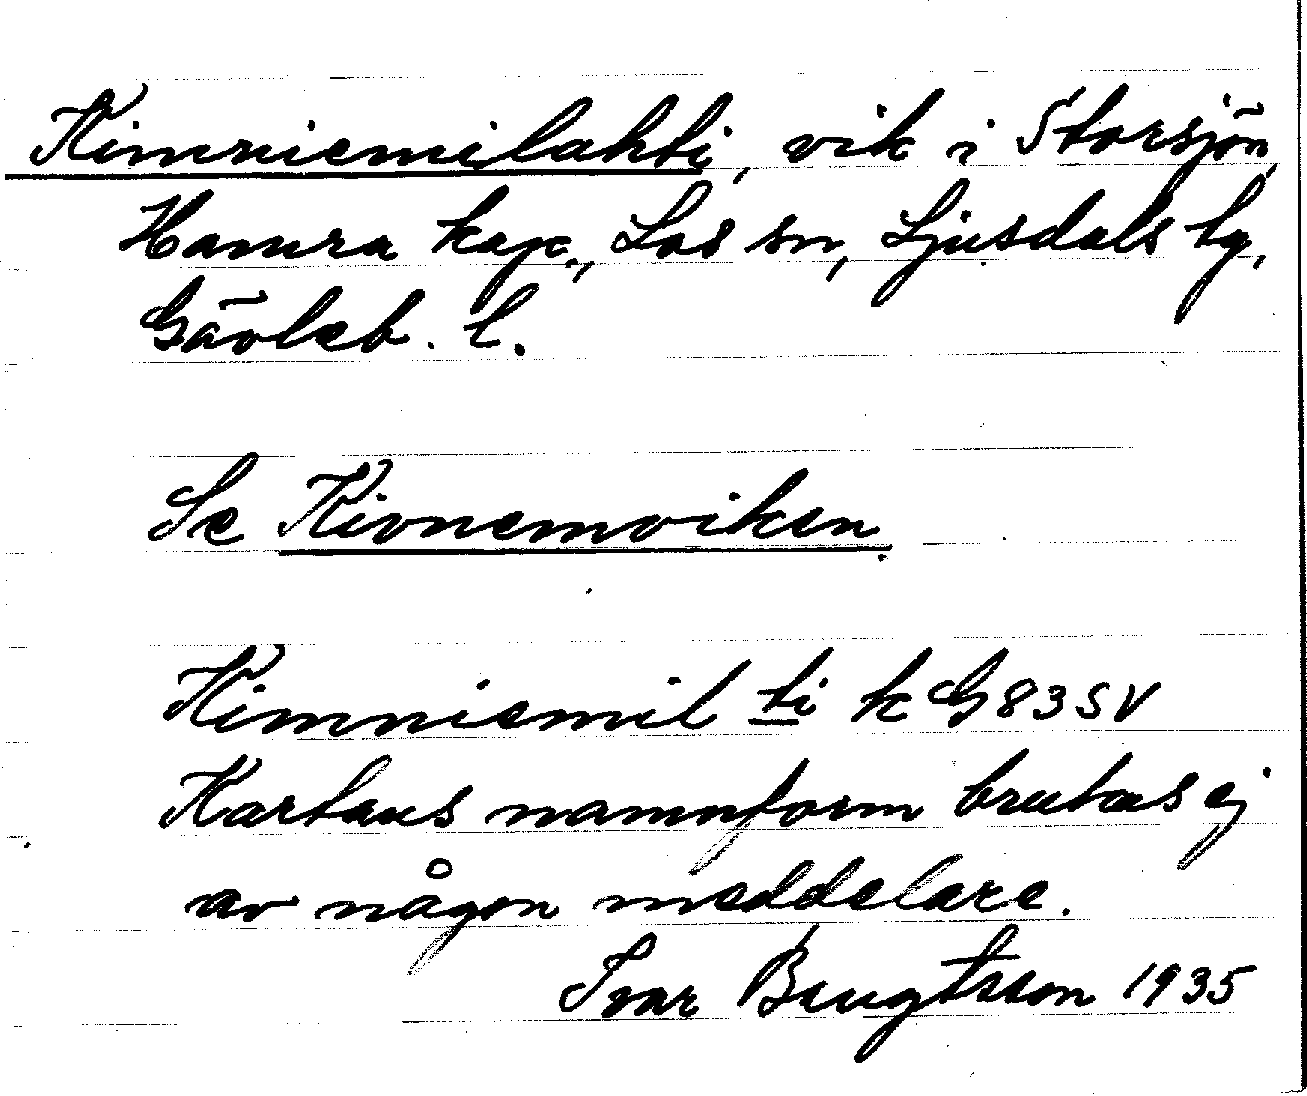 Kimniemilahti, vik i Storsjön,
Hamra kap., Los sn, Ljusdals tg,
Gävleb. l.
Se Kivnemviken.
Kimniemil ti k G83SV
Kartans namnform brukas ej
av någon meddelare.
Ivar Bengtsson 1935